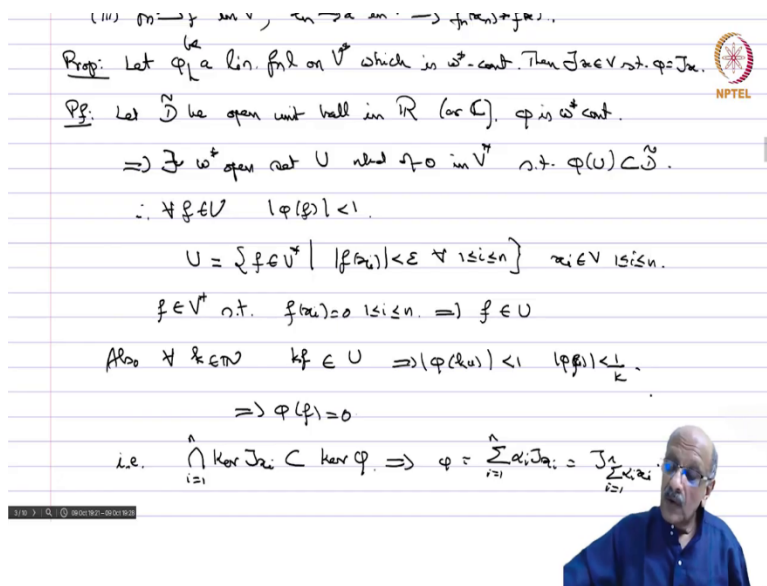 (iii) fn → f in V*, xn → x in V ⇒ fn(xn) → f(x).
Prop: Let φ be a lin. fnl on V* which is w*-cont. Then ∃x∈V s.t. φ=Jx.
NPTEL
Pf: Let D̃ be open unit ball in ℝ (or ℂ). φ is w* cont.
⇒ ∃ w* open set U nbd of 0 in V* s.t. φ(U) ⊂ D̃.
∴ ∀ f∈U |φ(f)|<1.
U = {f∈V* | |f(xi)|<ε ∀ 1≤i≤n} xi∈V 1≤i≤n.
f∈V* s.t. f(xi)=0 1≤i≤n. ⇒ f∈U
Also ∀ k∈ℕ kf ∈ U ⇒ |φ(ku)|<1 |φ(f)|<1/k.
⇒ φ(f)=0
i.e. ⋂_{i=1}^{n} Ker Jxi ⊂ ker φ. ⇒ φ = ∑_{i=1}^{n} αi Jxi = J_{∑_{i=1}^{n} αi xi}.
3/10
09 Oct 19:21 - 09 Oct 19:28